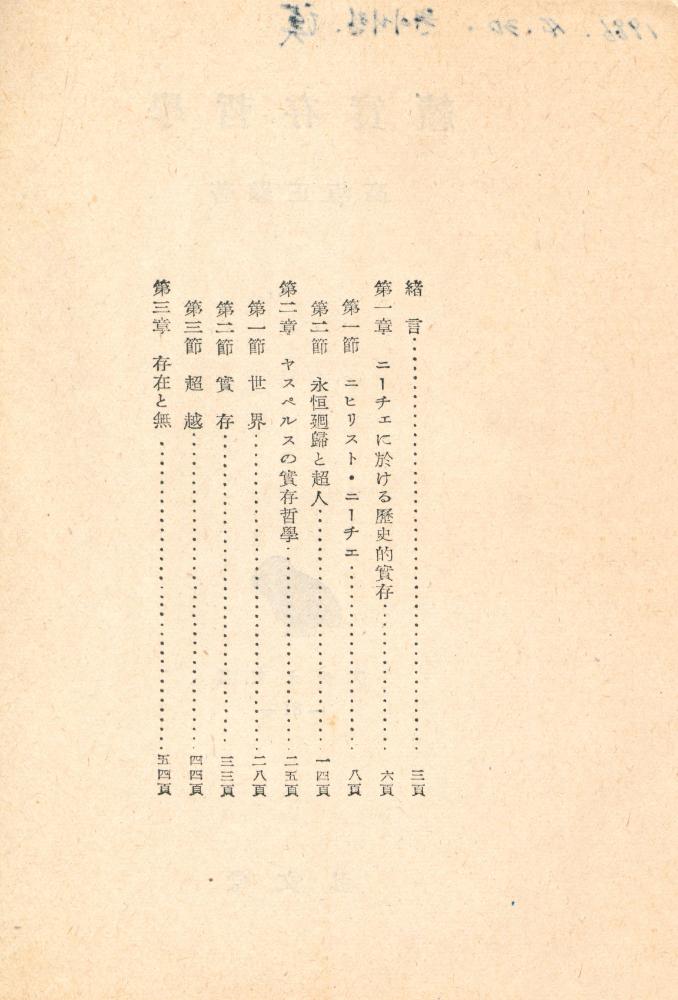 緒言……三頁
第一章 ニーチェに於ける歷史的實存……六頁
第一節 ニヒリスト・ニーチェ……八頁
第二節 永恒廻歸と超人……一四頁
第二章 ヤスペルスの實存哲學……二五頁
第一節 世界……二八頁
第二節 實存……三三頁
第三節 超越……四四頁
第三章 存在と無……五四頁